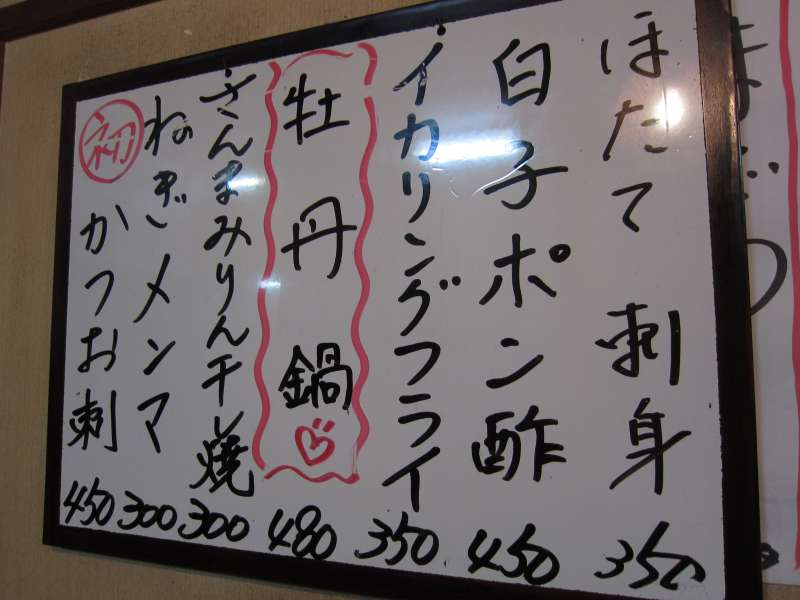 ほたて 刺身 350
白子ポン酢 450
イカリングフライ 350
牡丹鍋 480
さんまみりん干し焼 300
ねぎメンマ 300
初 かつお刺 450